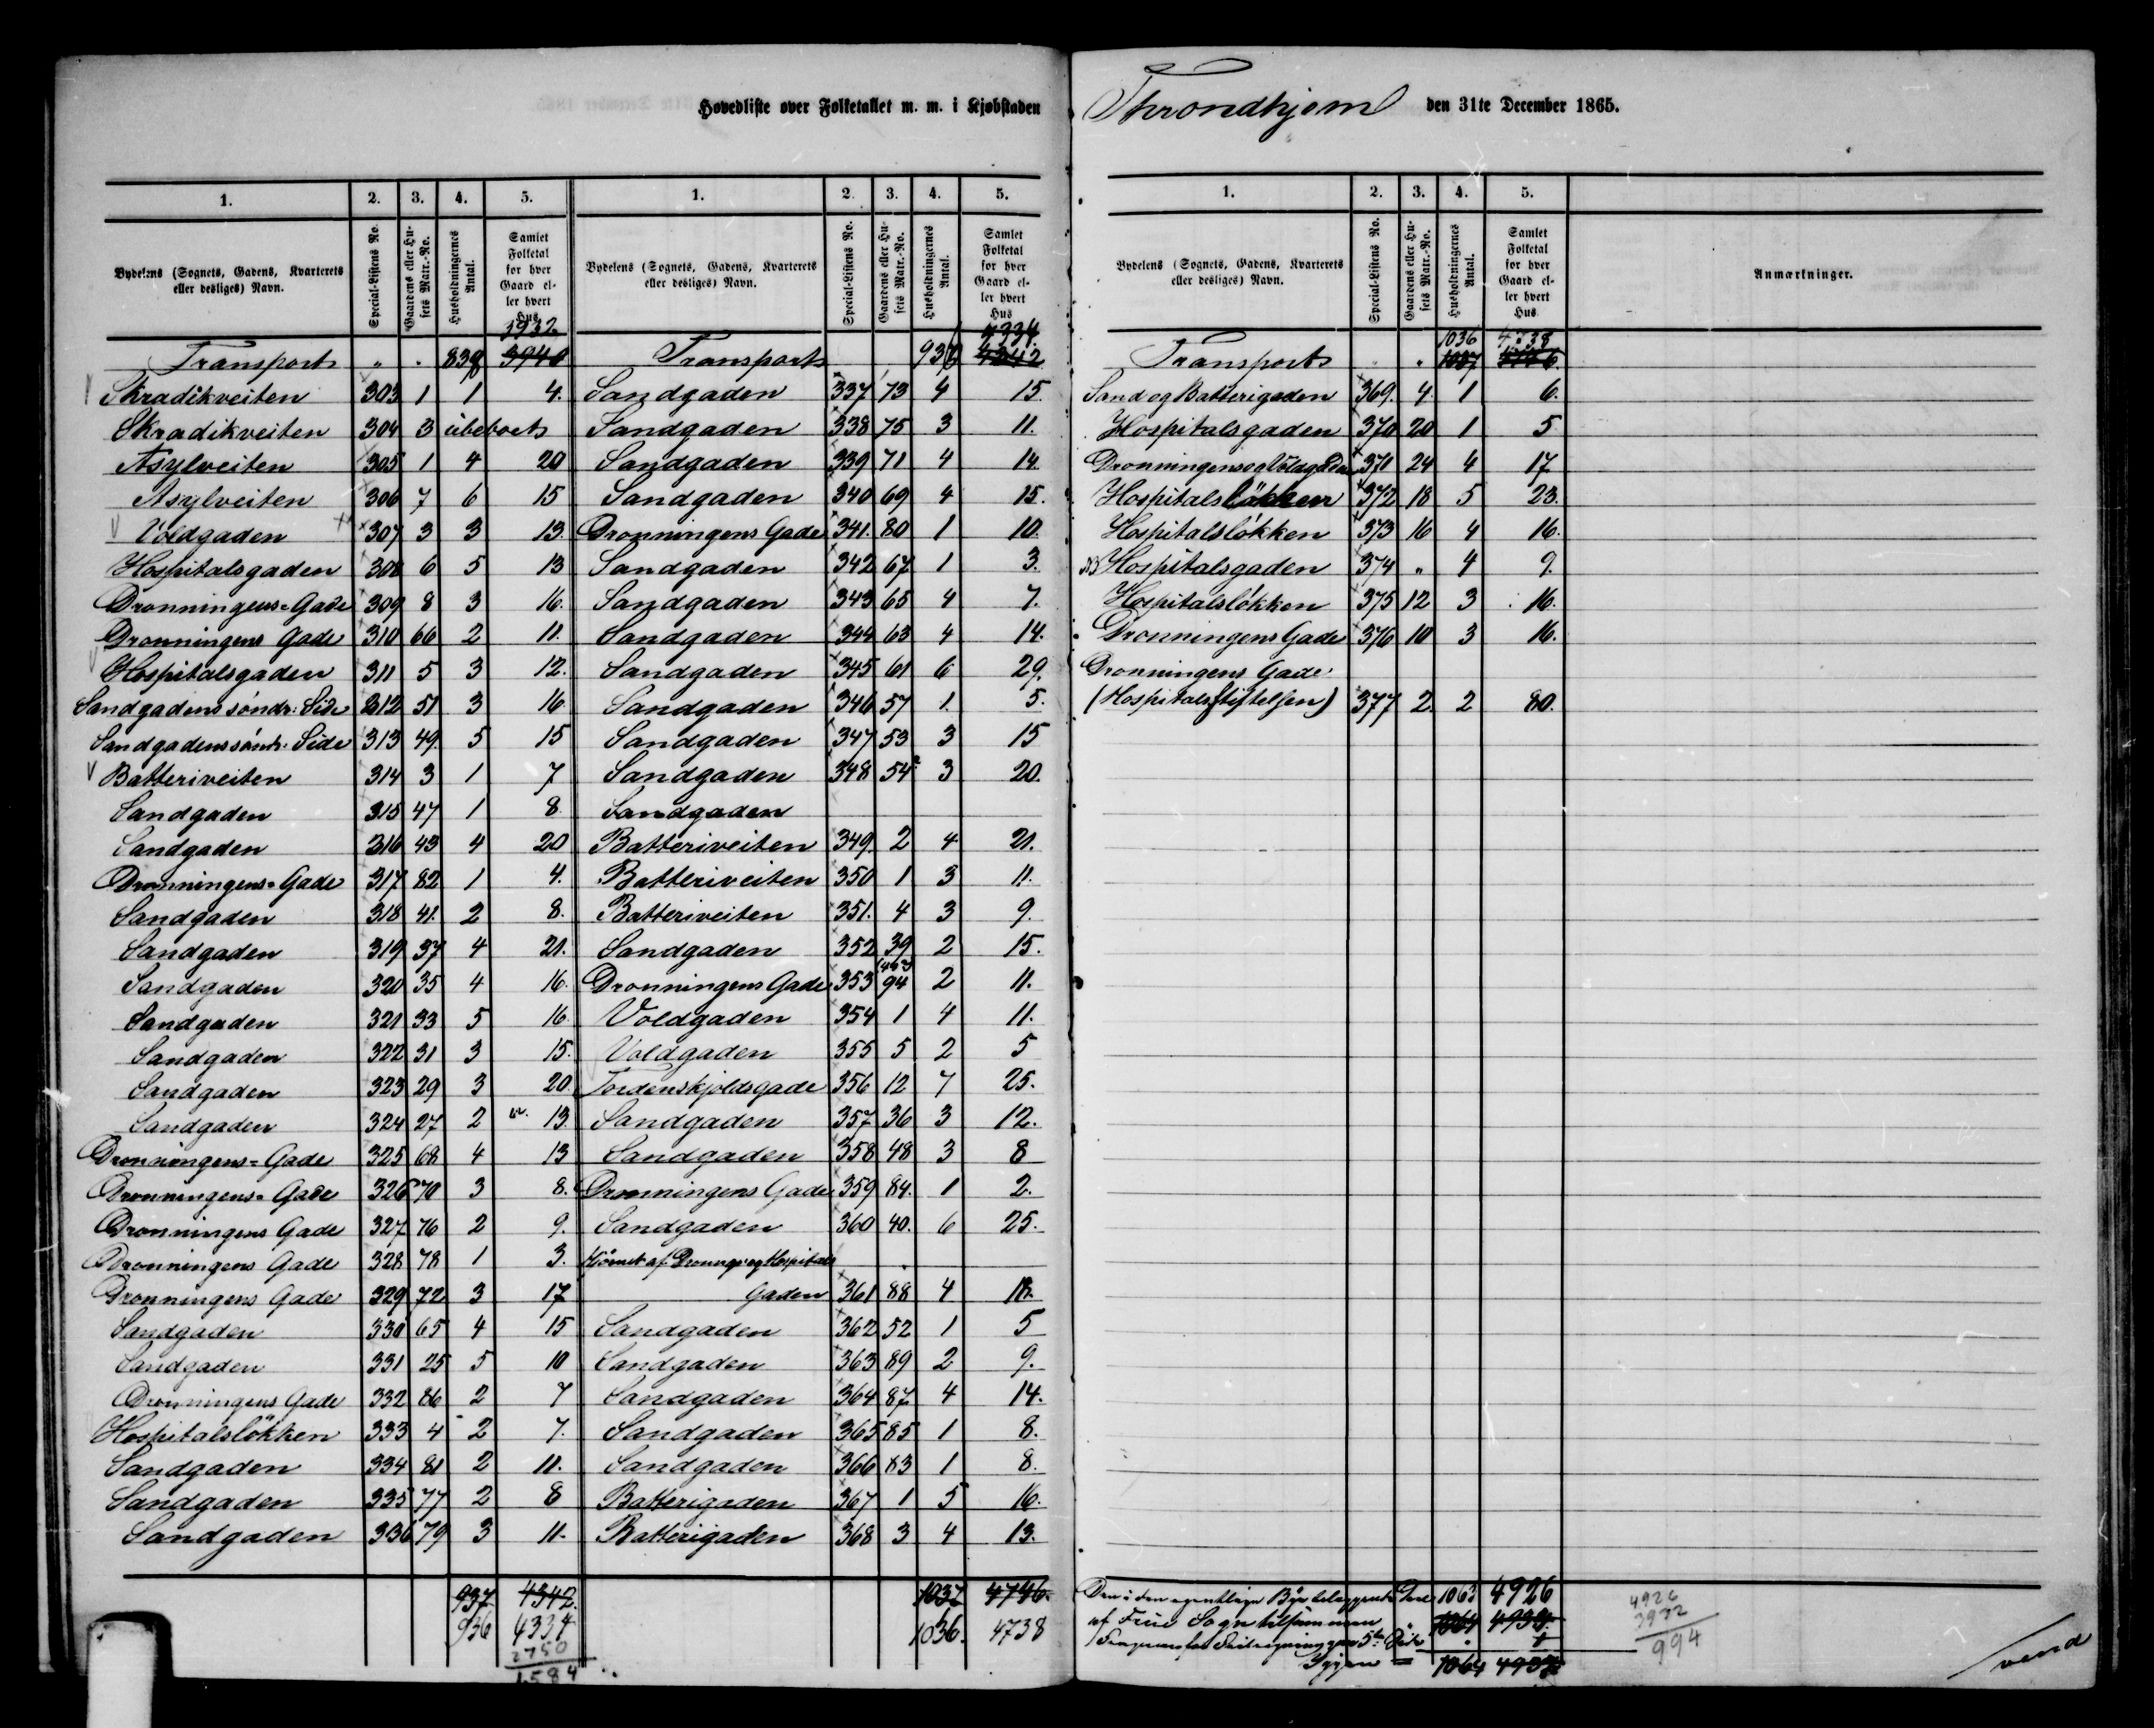 Hovedliste over Folketallet m. m. i Kjøbstaden Throndhjem den 31te December 1865.
1. 2. 3. 4. 5.
Bydelens (Sognets, Gadens, Kvarterets eller desliges) Navn. Special-Listens No. Gaardens eller Husets Matr.-No. Husholdningernes Antal. Samlet Folketal for hver Gaard eller hvert Hus
3932
Transport " " 838 3940
Skradikveiten 303 1 1 4.
Skradikveiten 304 3 ubeboet
Asylveiten 305 1 4 20
Asylveiten 306 7 6 15
Voldgaden 307 3 3 13.
Hospitalsgaden 308 6 5 13
Dronningens-Gade 309 8 3 16.
Dronningens Gade 310 66 2 11.
Hospitalsgaden 311 5 3 12.
Sandgadens söndr: Side 312 51 3 16
Sandgadens söndr: Side 313 49. 5 15
Batteriveiten 314 3 1 7
Sandgaden 315 47 1 8
Sandgaden 316 43 4 20
Dronningens-Gade 317 82 1 4.
Sandgaden 318 41. 2 8.
Sandgaden 319 37 4 21.
Sandgaden 320 35 4 16.
Sandgaden 321 33 5 16
Sandgaden 322 31 3 15.
Sandgaden 323 29 3 20
Sandgaden 324 27 2 13
Dronningens-Gade 325 68 4 13
Dronningens-Gade 326 70 3 8.
Dronningens Gade 327 76 2 9.
Dronningens Gade 328 78 1 3.
Dronningens Gade 329 72 3 17
Sandgaden 330 65 4 15
Sandgaden 331 25 5 10
Dronningens Gade 332 86 2 7
Hospitalslökken 333 4 2 7.
Sandgaden 334 81 2 11.
Sandgaden 335 77 2 8
Sandgaden 336 79 3 11.
937 4342.
936 4334
2750
1584
1. 2. 3. 4. 5.
Bydelens (Sognets, Gadens, Kvarterets eller desliges) Navn. Special-Listens No. Gaardens eller Husets Matr.-No. Husholdningernes Antal. Samlet Folketal for hver Gaard eller hvert Hus
4334
Transport 936 4342
Sandgaden 337 73 4 15.
Sandgaden 338 75 3 11.
Sandgaden 339 71 4 14.
Sandgaden 340 69 4 15.
Dronningens Gade 341. 80 1 10.
Sandgaden 342 67 1 3.
Sandgaden 343 65 4 7.
Sandgaden 344 63 4 14.
Sandgaden 345 61 6 29.
Sandgaden 346 57 1. 5.
Sandgaden 347 53 3 15
Sandgaden 348 54 3 20.
Sandgaden
Batteriveiten 349. 2 4 21.
Batteriveiten 350 1 3 11.
Batteriveiten 351. 4 3 9.
Sandgaden 352 39 2 15.
Dronningens Gade 353 94 2 11.
Voldgaden 354 1 4 11.
Voldgaden 355 5 2 5
Tordenskjoldsgade 356 12 7 25.
Sandgaden 357 36 3 12.
Sandgaden 358 48 3 8
Dronningens Gade 359 84. 1 2.
Sandgaden 360 40. 6 25.
Hjörnet af Dronngs og Hospitals
Gaden 361 88 4
Sandgaden 362 52 1 5
Sandgaden 363 89 2 9.
Sandgaden 364 87 4 14.
Sandgaden 365 85 1 8.
Sandgaden 366 83 1 8.
Batterigaden 367 1 5 16.
Batterigaden 368 3 4 13.
1037 4746.
1036. 4738
1. 2. 3. 4. 5.
Bydelens (Sognets, Gadens, Kvarterets eller desliges) Navn. Special-Listens No. Gaardens eller Husets Matr.-No. Husholdningernes Antal. Samlet Folketal for hver Gaard eller hvert Hus. Anmærkninger.
1036 4738
Transport " " 1037 4746
Sand og Batterigaden 369. 4. 1 6.
Hospitalsgaden 370 20 1 5
Dronningens og Voldgaden 371 24 4 17
Hospitalslökken 372 18 5 23.
Hospitalslökken 373 16 4 16.
Hospitalsgaden 374 " 4 9.
Hospitalslökken 375 12 3 16.
Dronningens Gade 376 10 3 16.
Dronningens Gade
(Hospitalsstiftelsen) 377 2 2 80.
Den i den egentlige By beliggende Deel 1063 4926
af Frue Sogn tilsammen 1064
Igjen = 1064
4926
3932
994
vend